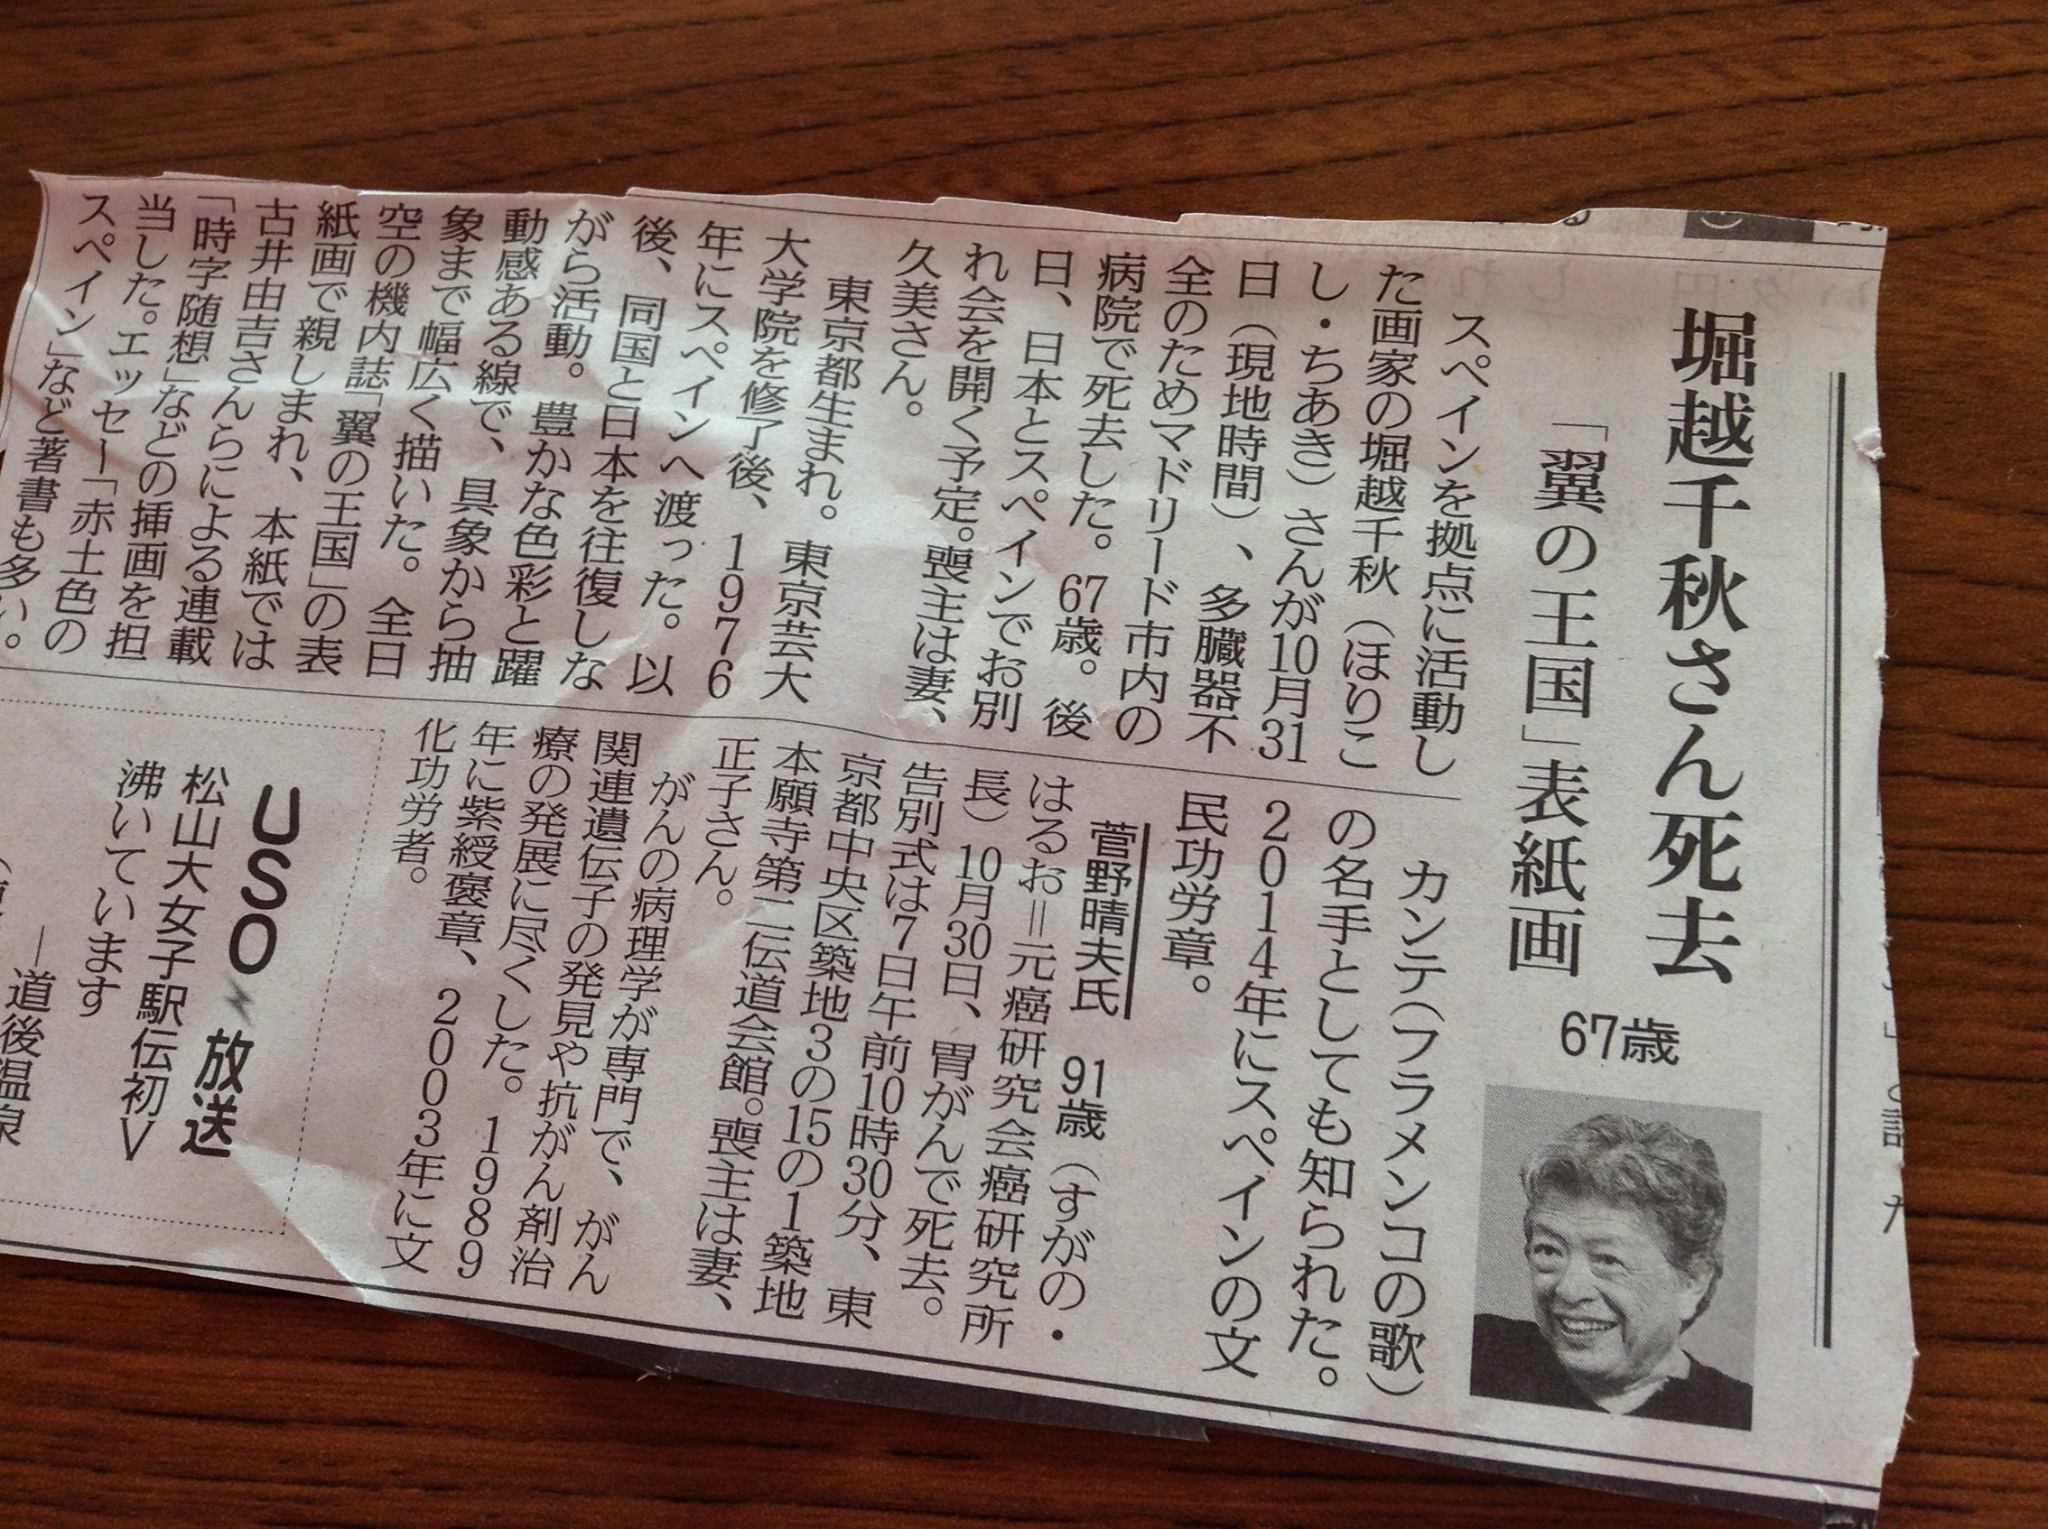 堀越千秋さん死去
「翼の王国」表紙画
67歳
スペインを拠点に活動し
た画家の堀越千秋（ほりこ
し・ちあき）さんが10月31
日（現地時間）、多臓器不
全のためマドリード市内の
病院で死去した。67歳。後
日、日本とスペインでお別
れ会を開く予定。喪主は妻、
久美さん。
東京都生まれ。東京芸大
大学院を修了後、1976
年にスペインへ渡った。以
後、同国と日本を往復しな
がら活動。豊かな色彩と躍
動感ある線で、具象から抽
象まで幅広く描いた。全日
空の機内誌「翼の王国」の表
紙画で親しまれ、本紙では
古井由吉さんらによる連載
「時字随想」などの挿画を担
当した。エッセー「赤土色の
スペイン」など著書も多い。
カンテ（フラメンコの歌）
の名手としても知られた。
2014年にスペインの文
民功労章。
菅野晴夫氏 91歳（すがの・
はるお＝元癌研究会癌研究所
長）10月30日、胃がんで死去。
告別式は7日午前10時30分、東
京都中央区築地3の15の1築地
本願寺第二伝道会館。喪主は妻、
正子さん。
がんの病理学が専門で、がん
関連遺伝子の発見や抗がん剤治
療の発展に尽くした。1989
年に紫綬褒章、2003年に文
化功労者。
USO放送
松山大女子駅伝初V
沸いています
―道後温泉